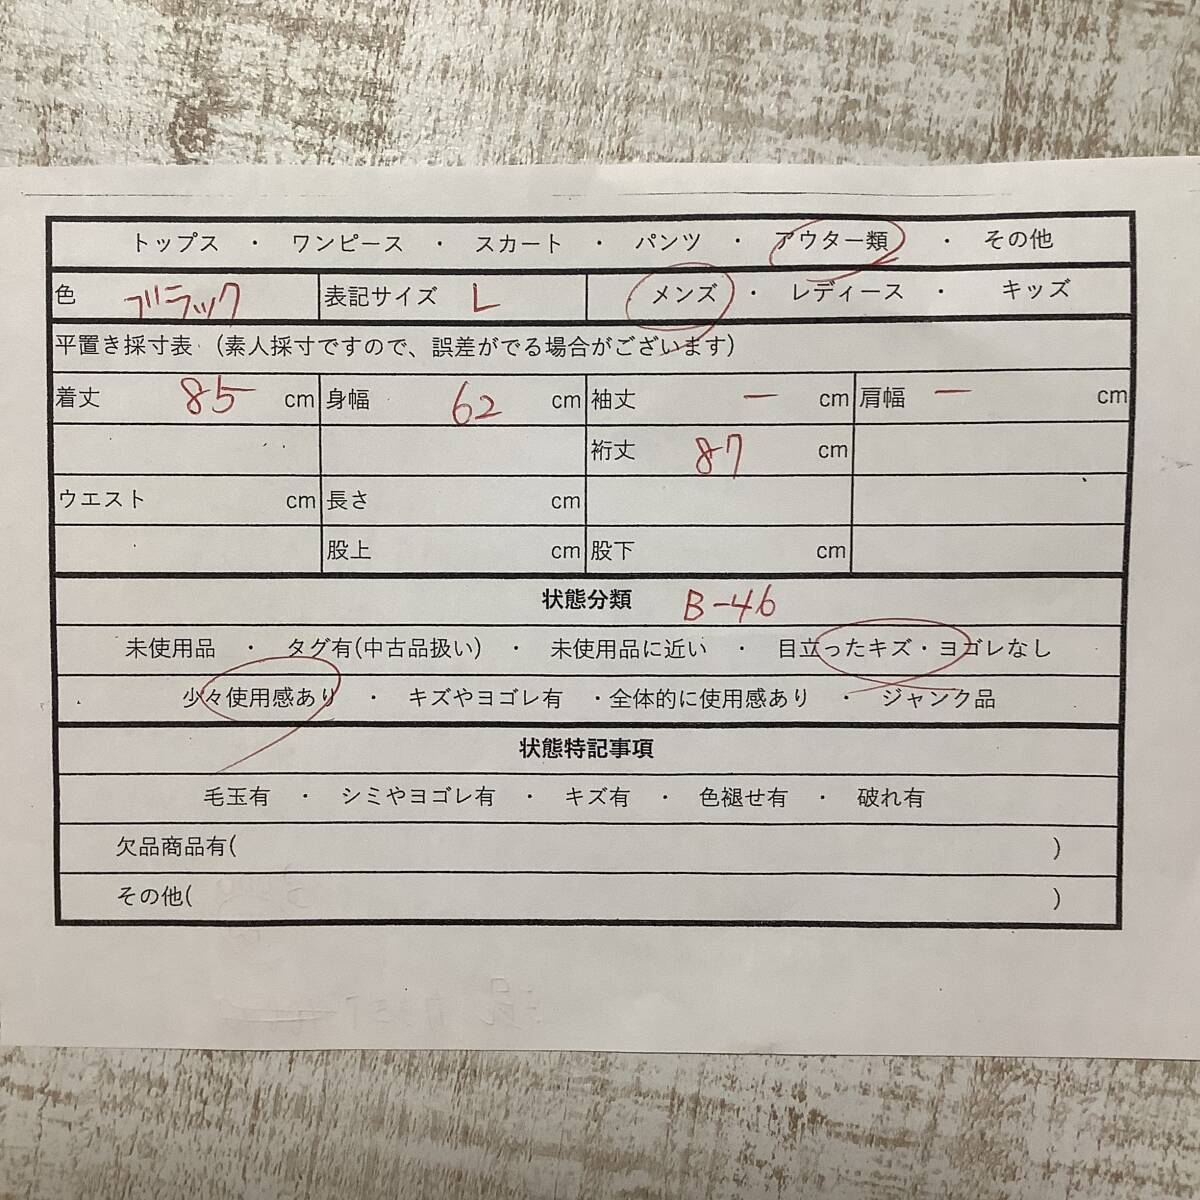 トップス ・ ワンピース ・ スカート ・ パンツ ・ アウター類 ・ その他
色 ブラック 表記サイズ L メンズ ・ レディース ・ キッズ
平置き採寸表 (素人採寸ですので、誤差がでる場合がございます)
着丈 85 cm 身幅 62 cm 袖丈 ー cm 肩幅 ー cm
裄丈 87 cm
ウエスト cm 長さ cm
股上 cm 股下 cm
状態分類 B-46
未使用品 ・ タグ有(中古品扱い) ・ 未使用品に近い ・ 目立ったキズ・ヨゴレなし
少々使用感あり ・ キズやヨゴレ有 ・全体的に使用感あり ・ ジャンク品
状態特記事項
毛玉有 ・ シミやヨゴレ有 ・ キズ有 ・ 色褪せ有 ・ 破れ有
欠品商品有( )
その他( )